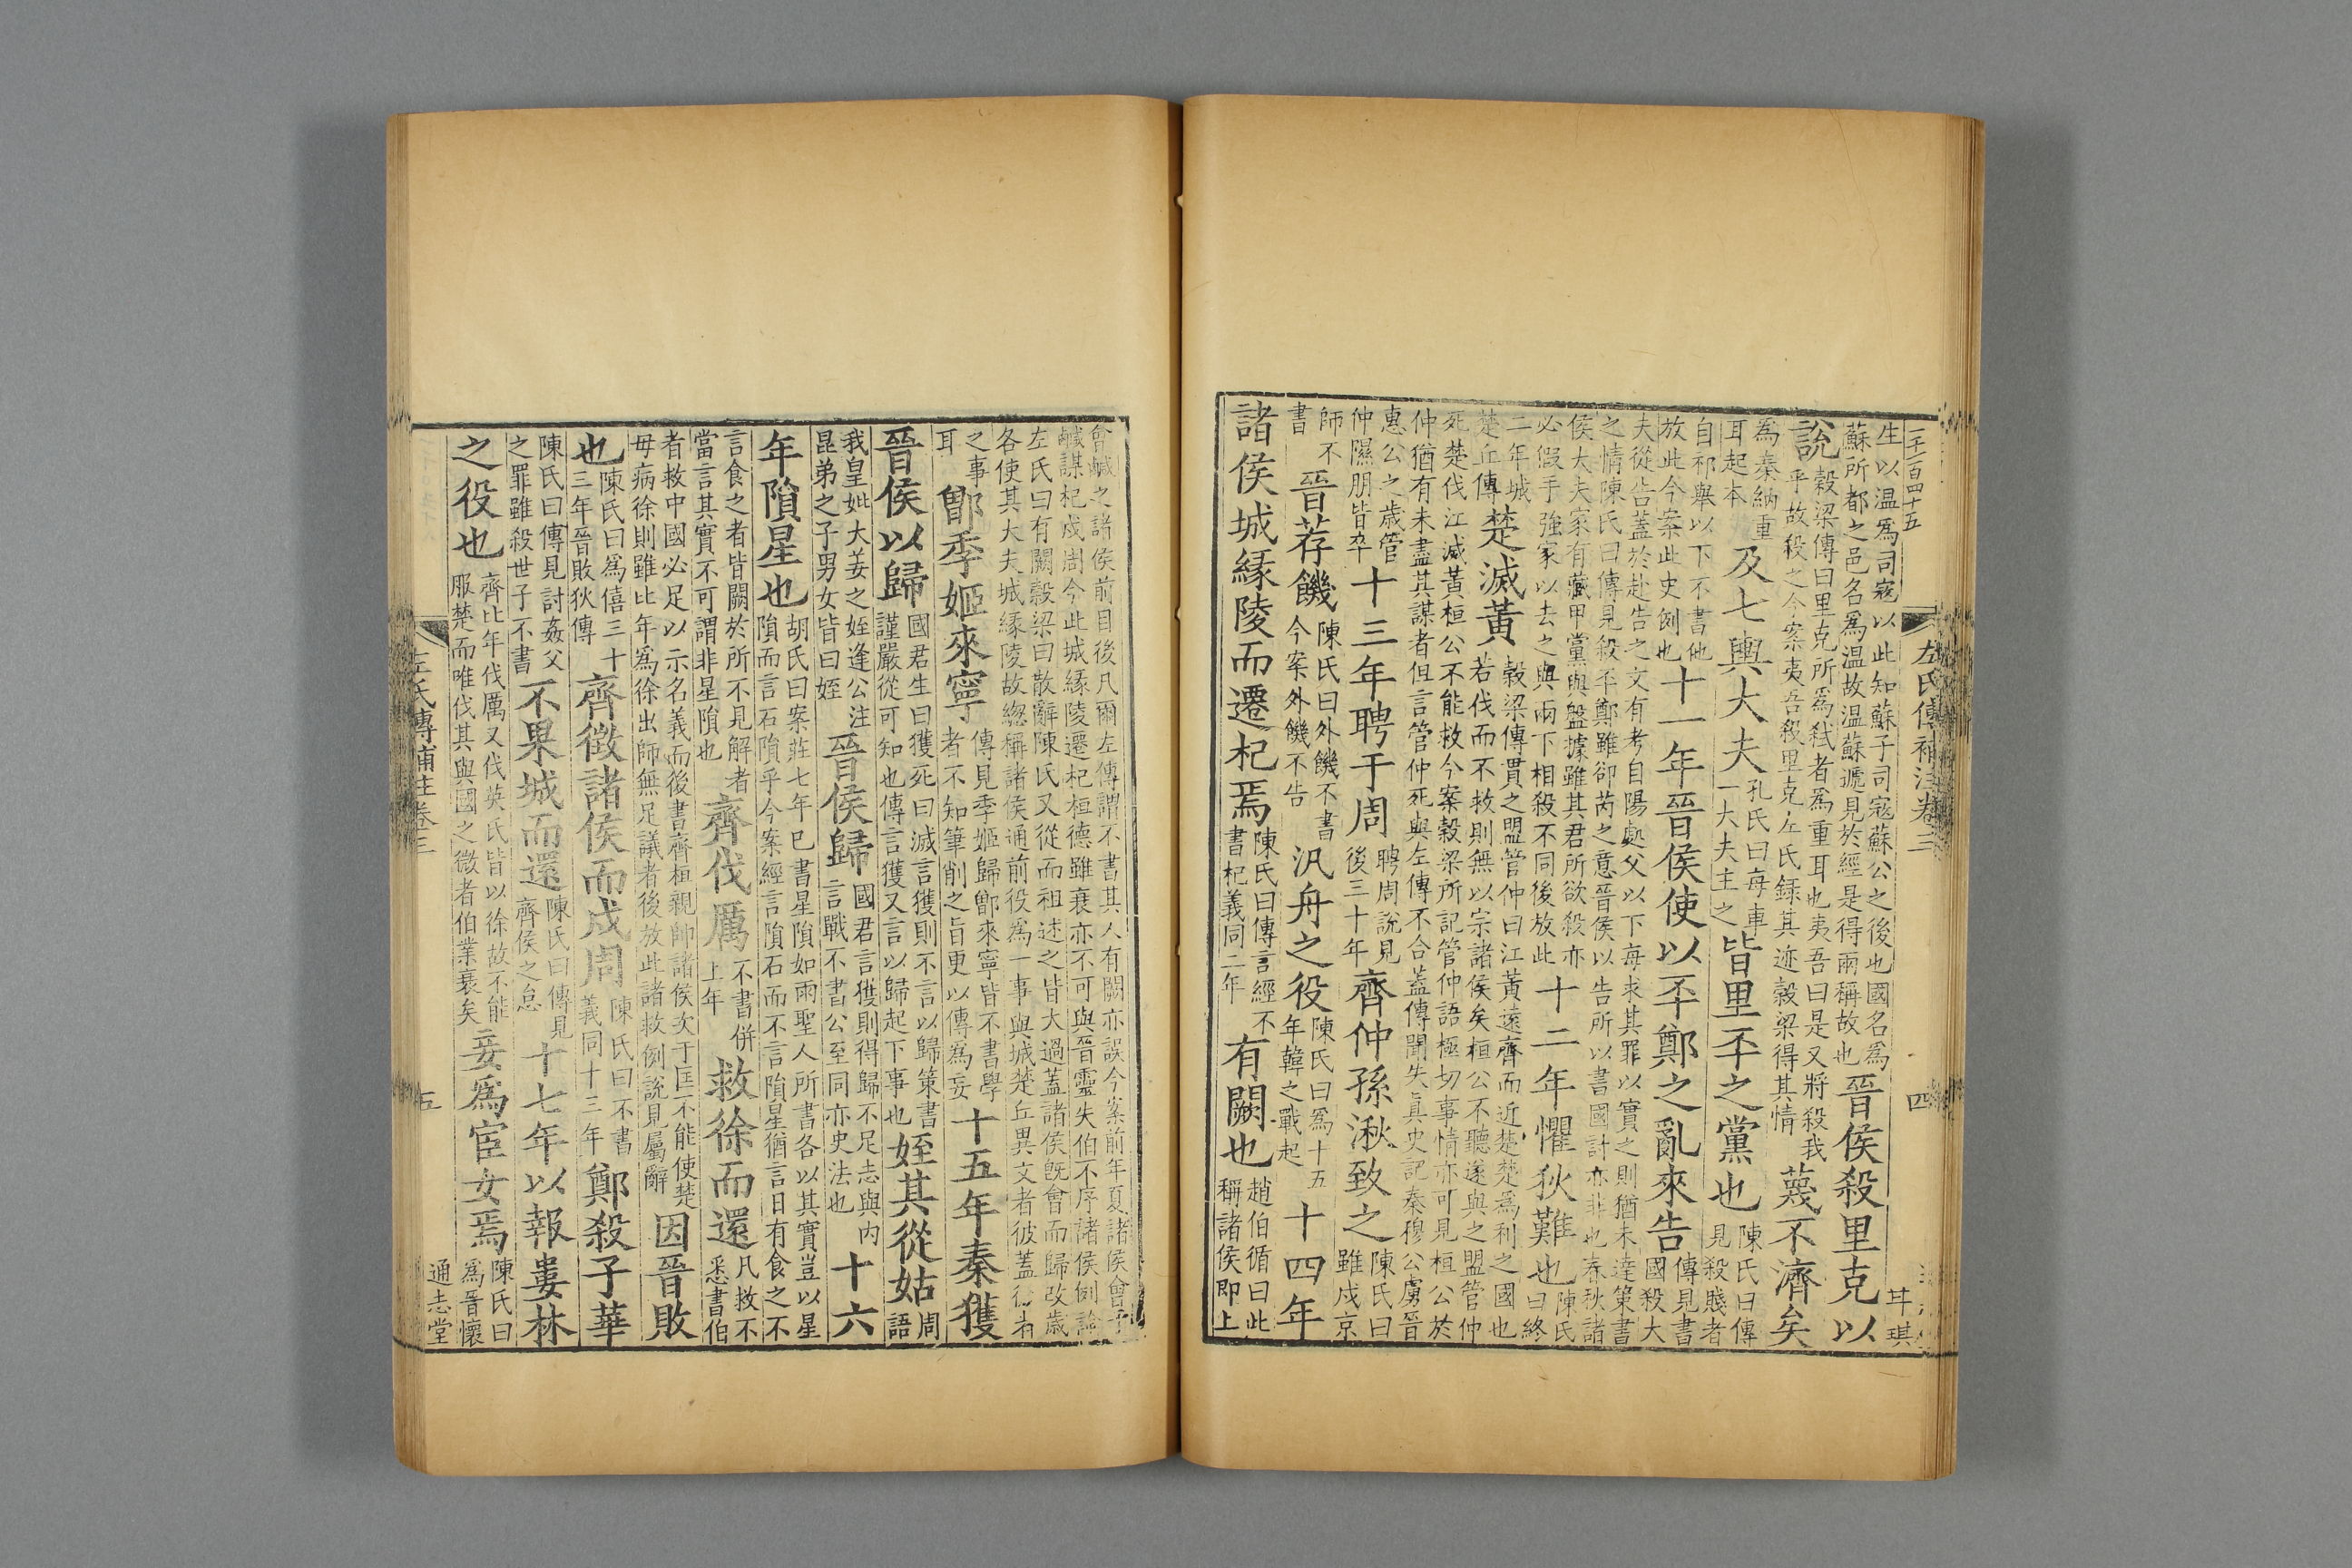 左氏傳補注卷三
四
甘琪
生以温爲司寇以此知蘇子司寇蘇公之後也國名爲
蘇所都之邑名爲温故温蘇遞見於經是得兩稱故也
晉侯殺里克以
說
榖梁傳曰里克所爲弑者爲重耳也夷吾曰是又將殺我
乎故殺之今案夷吾殺里克左氏録其迹榖梁得其情
蔑不濟矣
爲秦納重
耳起本
及七輿大夫
孔氏曰每車
一大夫主之
皆里丕之黨也
陳氏曰傳
見殺賤者
自祁舉以下不書他
故此今案此史例也
十一年晉侯使以丕鄭之亂來告
傳見書
國殺大
夫從告蓋於赴告之文有考自陽處父以下每求其罪以實之則猶未達策書
之情陳氏曰傳見殺丕鄭雖卻芮之意晉侯以告所以書國討亦非也春秋諸
侯大夫家有藏甲黨與盤據雖其君所欲殺亦
必假手強家以去之與兩下相殺不同後放此
十二年懼狄難也
陳氏
曰終
二年城
楚丘傳
楚滅黃
榖梁傳貫之盟管仲曰江黃遠齊而近楚楚爲利之國也
若伐而不救則無以宗諸侯矣桓公不聽遂與之盟管仲
死楚伐江滅黃桓公不能救今案榖梁所記管仲語極切事情亦可見桓公於
仲猶有未盡其謀者但言管仲死與左傳不合蓋傳聞失真史記秦穆公虜晉
惠公之歲管
仲隰朋皆卒
十三年聘于周
聘周說見
後三十年
齊仲孫湫致之
陳氏曰
雖戍京
師不
書
晉荐饑
陳氏曰外饑不書
今案外饑不告
汎舟之役
陳氏曰爲十五
年韓之戰起
十四年
諸侯城緣陵而遷杞焉
陳氏曰傳言經不
書杞義同二年
有闕也
趙伯循曰此
稱諸侯即上
會鹹之諸侯前目後凡爾左傳謂不書其人有闕亦誤今案前年夏諸侯會于
鹹謀杞戍周今此城緣陵遷杞桓德雖衰亦不可與晉靈失伯不序諸侯例論
左氏曰有闕榖梁曰散辭陳氏又從而祖述之皆大過蓋諸侯旣會而歸改歲
各使其大夫城緣陵故緫稱諸侯通前役爲一事與城楚丘異文者彼蓋往
之事
耳
鄫季姬來寧
傳見季姬歸鄫來寧皆不書學
者不知筆削之旨更以傳爲妄
十五年秦獲
晉侯以歸
國君生曰獲死曰滅言獲則不言以歸策書
謹嚴從可知也傳言獲又言以歸起下事也
姪其從姑
周
語
我皇妣大姜之姪逢公注
昆弟之子男女皆曰姪
晉侯歸
國君言獲則得歸不足志與内
言戰不書公至同亦史法也
十六
年隕星也
胡氏曰案莊七年已書星隕如雨聖人所書各以其實豈以星
隕而言石隕乎今案經言隕石而不言隕星猶言日有食之不
言食之者皆闕於所不見解者
當言其實不可謂非星隕也
齊伐厲
不書併
上年
救徐而還
凡救不
悉書伯
者救中國必足以示名義而後書齊桓親帥諸侯次于匡不能使楚
毋病徐則雖比年爲徐出師無足議者後放此諸救例說見屬辭
因晉敗
也
陳氏曰爲僖三十
三年晉敗狄傳
齊徵諸侯而戍周
陳氏曰不書
義同十三年
鄭殺子華
陳氏曰傳見討姦父
之罪雖殺世子不書
不果城而還
陳氏曰傳見
齊侯之怠
十七年以報婁林
之役也
齊比年伐厲又伐英氏皆以徐故不能
服楚而唯伐其與國之微者伯業衰矣
妾爲宦女焉
陳氏曰
爲晉懷
左氏傳補注卷三
五
通志堂